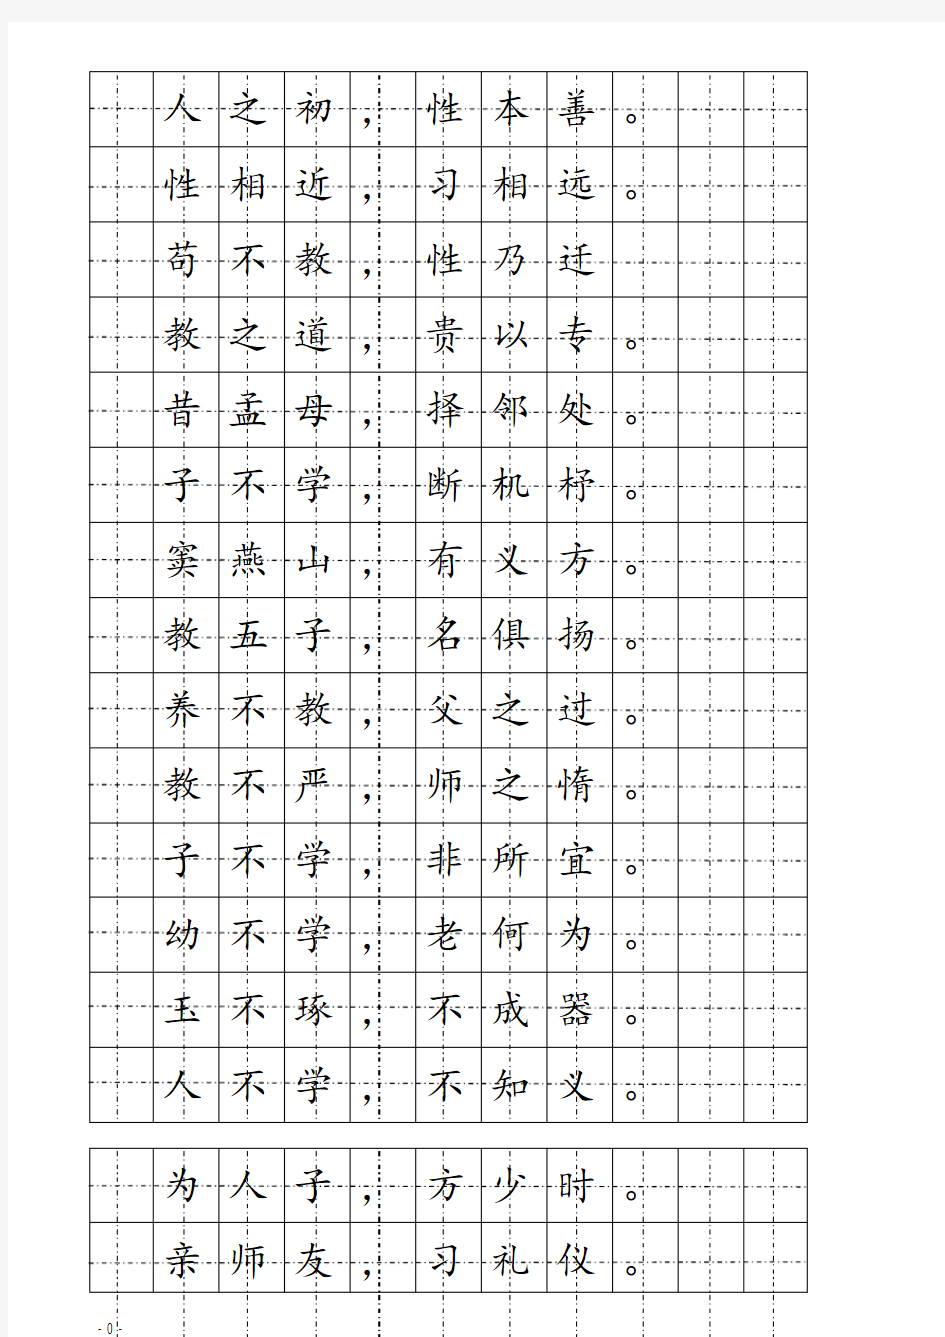 人之初，性本善。
性相近，习相远。
苟不教，性乃迁
教之道，贵以专。
昔孟母，择邻处。
子不学，断机杼。
窦燕山，有义方。
教五子，名俱扬。
养不教，父之过。
教不严，师之惰。
子不学，非所宜。
幼不学，老何为。
玉不琢，不成器。
人不学，不知义。
为人子，方少时。
亲师友，习礼仪。
- 0 -